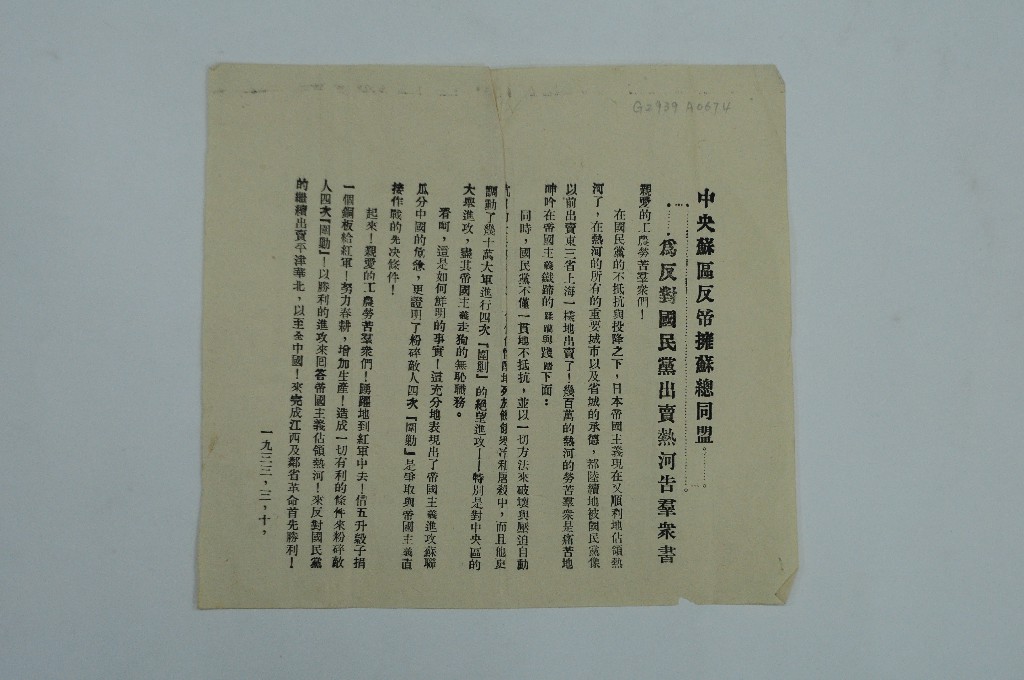 G2939 A0674
中央蘇區反帝擁蘇總同盟
爲反對國民黨出賣熱河告羣衆書
親愛的工農勞苦羣衆們！
在國民黨的不抵抗與投降之下，日本帝國主義現在又順利地佔領熱
河了，在熱河的所有的重要城市以及省城的承德，都陸續地被國民黨像
以前出賣東三省上海一樣地出賣了！幾百萬的熱河的勞苦羣衆是痛苦地
呻吟在帝國主義鐵蹄的蹂躪與踐踏下面：
同時，國民黨不僅一貫地不抵抗，並以一切方法來破壞與壓迫自動
屠殺中，而且他更
調動了幾十萬大軍進行四次『圍剿』的絕望進攻——特別是對中央區的
大舉進攻，盡其帝國主義走狗的無恥職務。
看呵，這是如何鮮明的事實！這充分地表現出了帝國主義進攻蘇聯
瓜分中國的危急，更證明了粉碎敵人四次『圍剿』是爭取與帝國主義直
接作戰的先决條件！
起來！親愛的工農勞苦羣衆們！踴躍地到紅軍中去！借五升穀子捐
一個銅板給紅軍！努力春耕，增加生產！造成一切有利的條件來粉碎敵
人四次『圍剿』！以勝利的進攻來回答帝國主義佔領熱河！來反對國民黨
的繼續出賣平津華北，以至全中國！來完成江西及鄰省革命首先勝利！
一九三三，三，十，